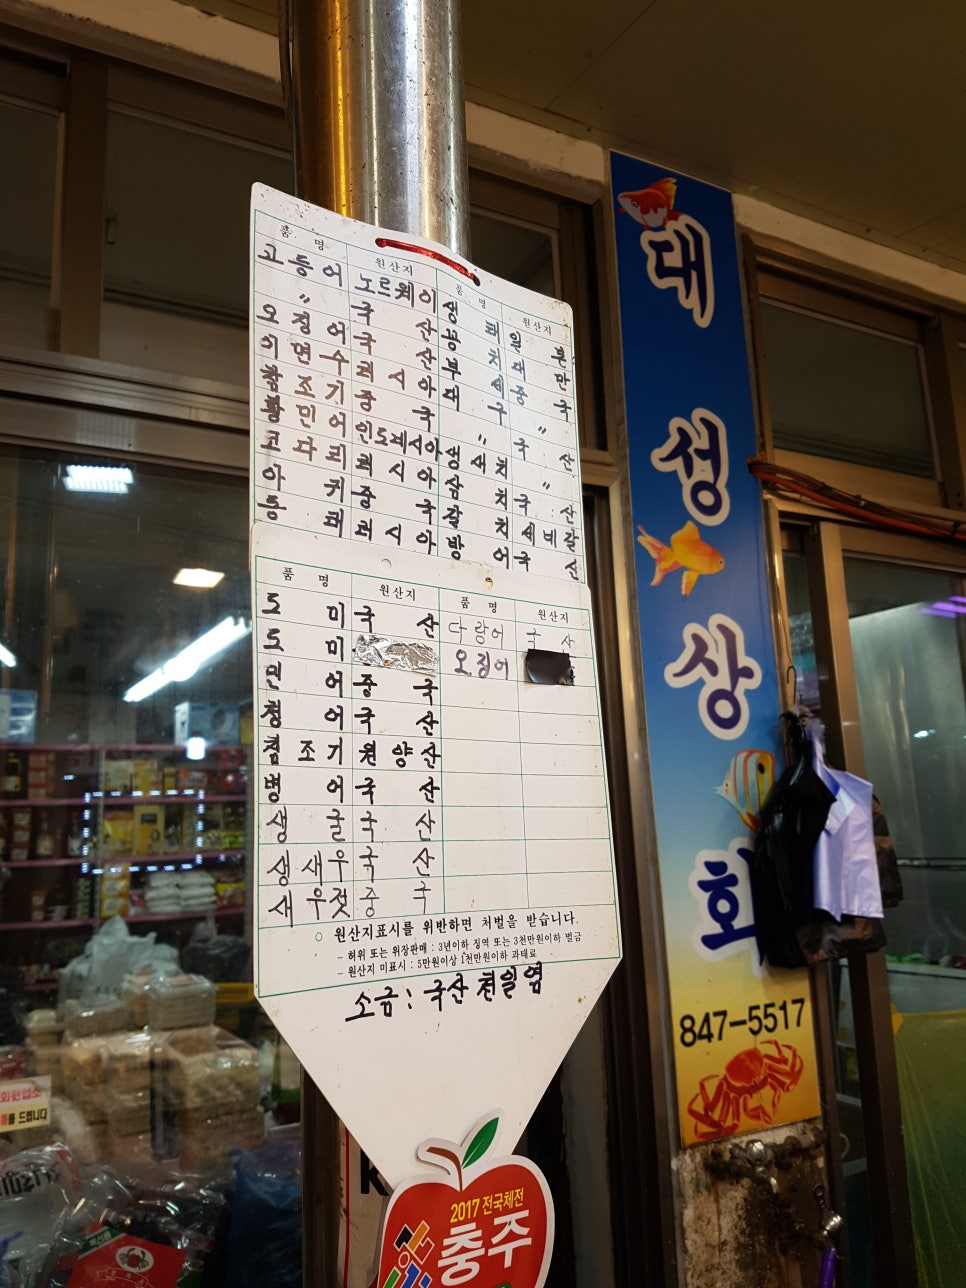 품 명 원산지 품 명 원산지
고등어 노르웨이 생태 일본
〃 국산 꽁치 대만
오징어 국산 부세 중국
이면수 러시아 대구 〃
참조기 중국 〃 국산
황민어 인도네시아 생새치 〃
코다리 러시아 삼치 국산
아귀 중국 갈치 세네갈
동태 러시아 방어 국산
품 명 원산지 품 명 원산지
도미 국산 다랑어 국산
도미 오징어
민어 중국
청어 국산
침조기 원양산
병어 국산
생굴 국산
생새우 국산
새우젓 중국
○ 원산지표시를 위반하면 처벌을 받습니다.
- 허위 또는 위장판매 : 3년이하 징역 또는 3천만원이하 벌금
- 원산지 미표시 : 5만원이상 1천만원이하 과태료
소금 : 국산 천일염
2017 전국체전
충주
대성상회
847-5517